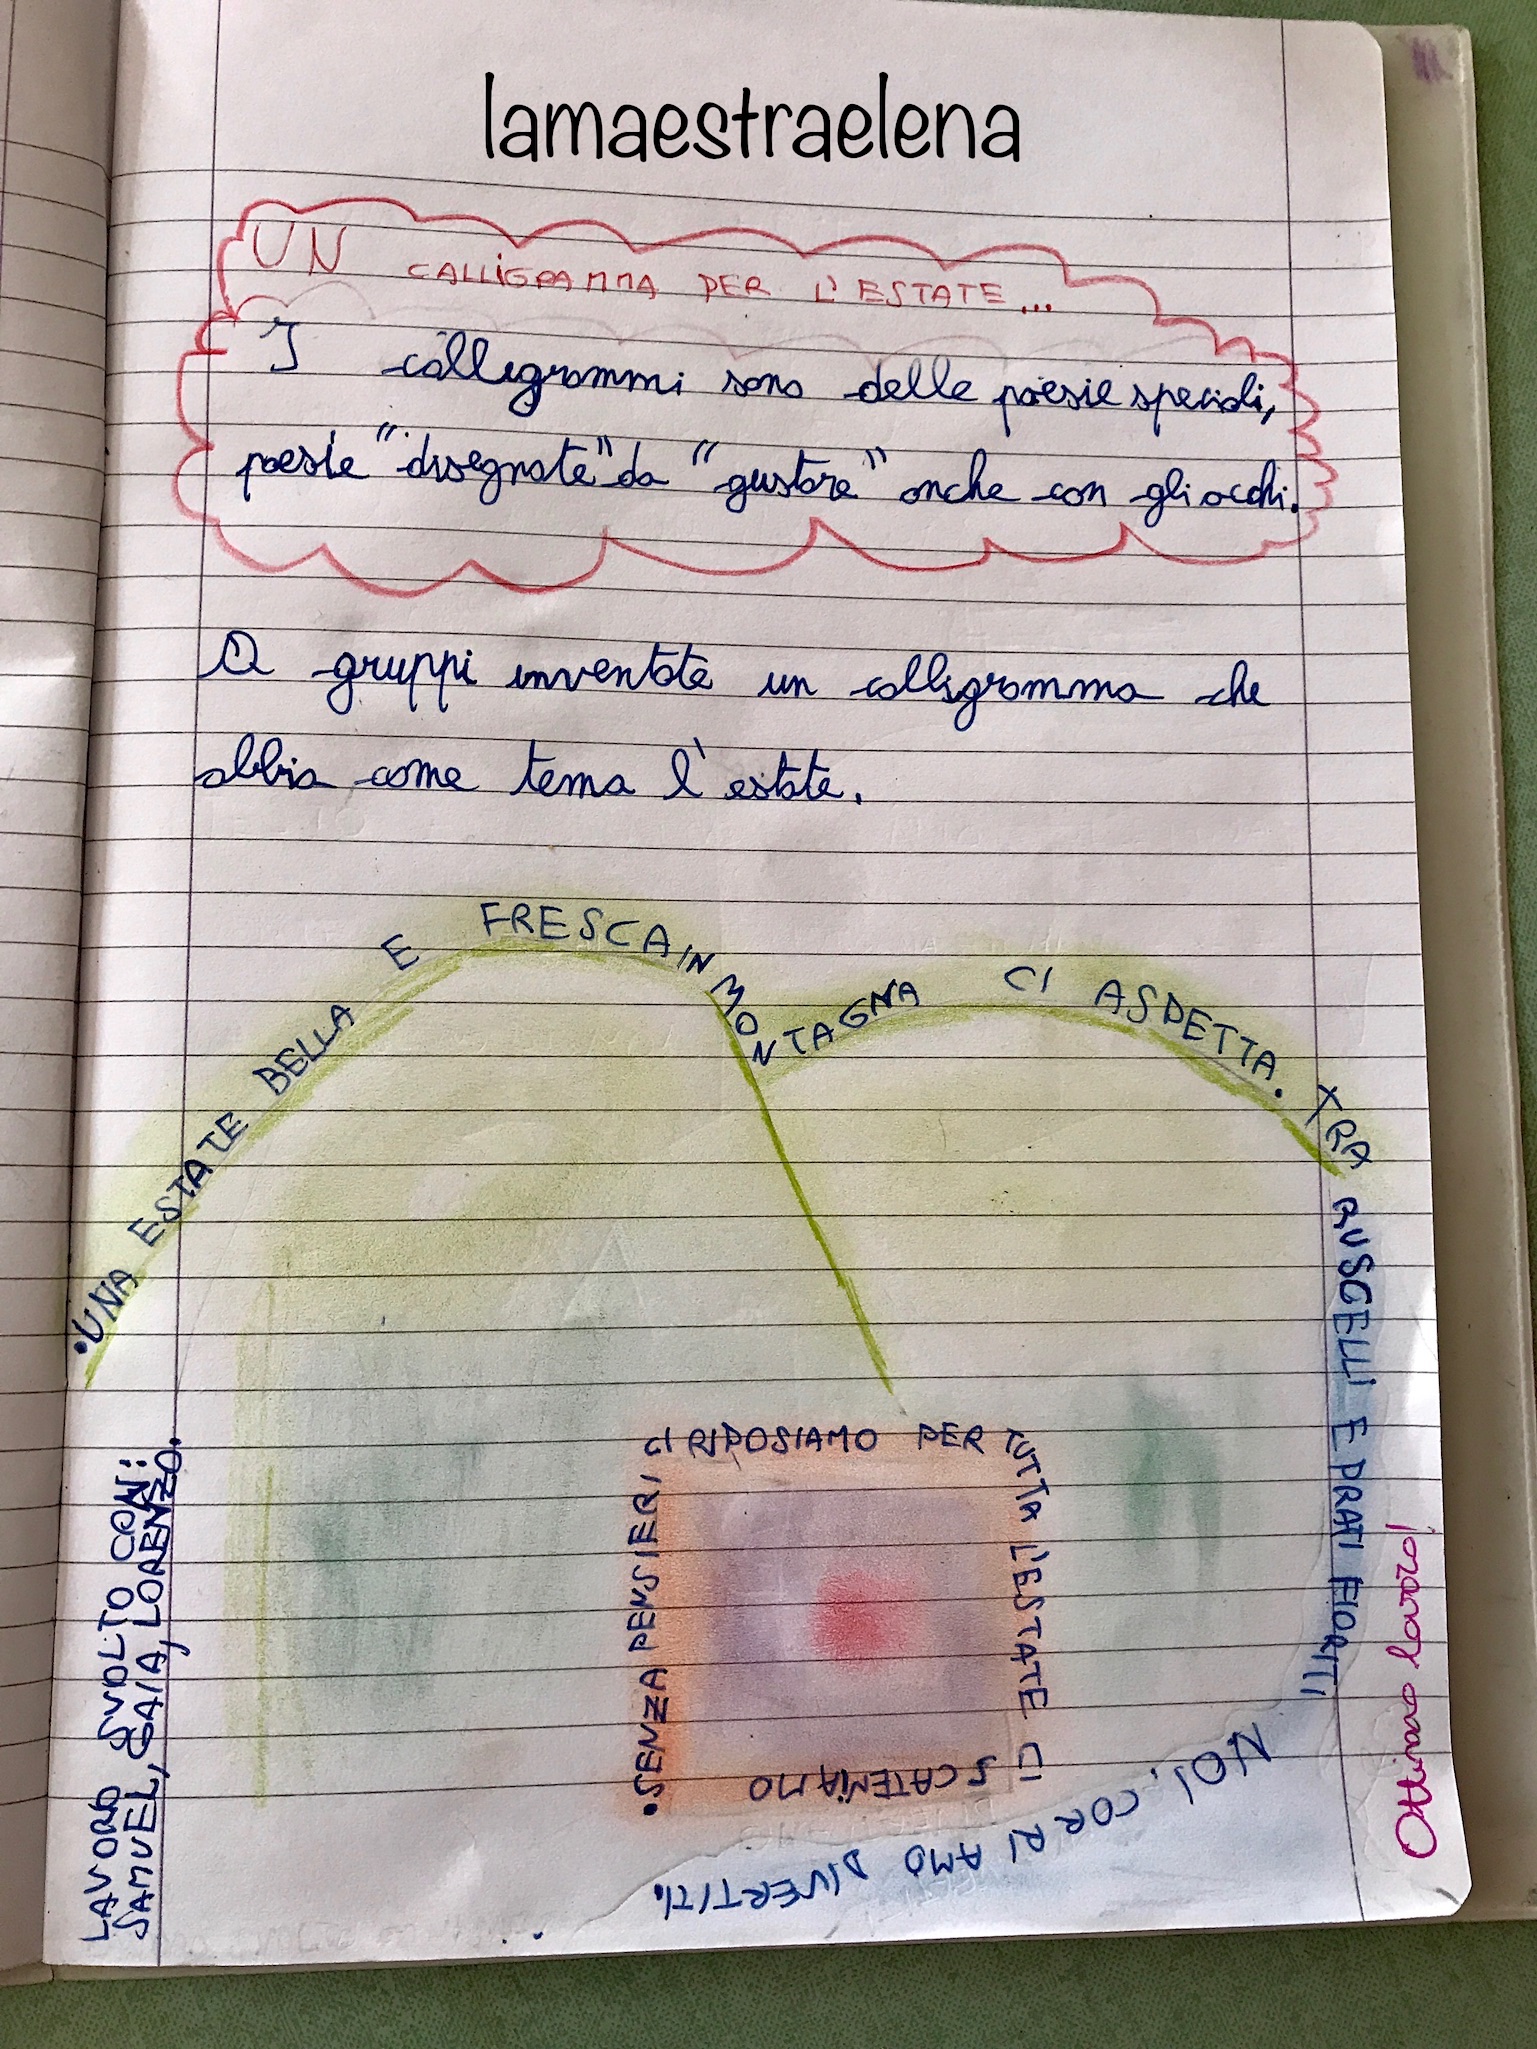 lamaestraelena
UN CALLIGRAMMA PER L'ESTATE...
I calligrammi sono delle poesie speciali,
poesie "disegnate" da "gustare" anche con gli occhi.
A gruppi inventate un calligramma che
abbia come tema l'estate.
•UNA ESTATE BELLA E FRESCA IN MONTAGNA CI ASPETTA. TRA RUSCELLI E PRATI FIORITI NOI, CORRIAMO DIVERTITI.
•SENZA PENSIERI CI RIPOSIAMO PER TUTTA L'ESTATE CI SCATENIAMO
LAVORO SVOLTO CON:
SAMUEL, GAIA, LORENZO.
Ottimo lavoro!